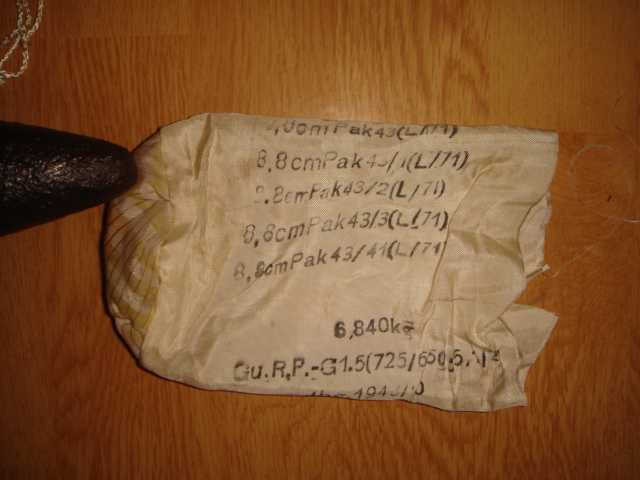 8,8cmPak43(L/71)
8,8cmPak43/1(L/71)
8.8cmPak43/2(L/71)
8,8cmPak43/3(L/71)
8,8cmPak43/41(L/71
6,840kg
Gu.R.P.-G1.5(725/650